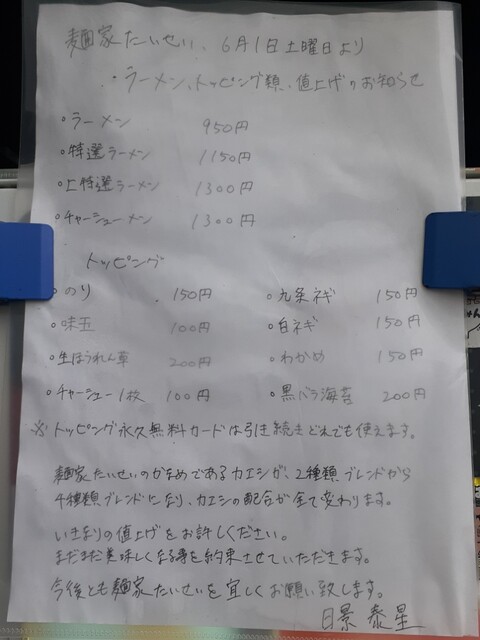 麺家たいせい、6月1日土曜日より
・ラーメン、トッピング類、値上げのお知らせ
・ラーメン 950円
・特選ラーメン 1150円
・上特選ラーメン 1300円
・チャーシューメン 1300円
トッピング
・のり 150円 ・九条ネギ 150円
・味玉 100円 ・白ネギ 150円
・生ほうれん草 200円 ・わかめ 150円
・チャーシュー1枚 100円 ・黒バラ海苔 200円
※トッピング永久無料カードは引き続きどれでも使えます。
麺家たいせいのかなめであるカエシが、2種類ブレンドから
4種類ブレンドになり、カエシの配合が全て変わります。
いきなりの値上げをお許しください。
まだまだ美味しくなる事を約束させていただきます。
今後とも麺家たいせいを宜しくお願い致します。
日景 泰星